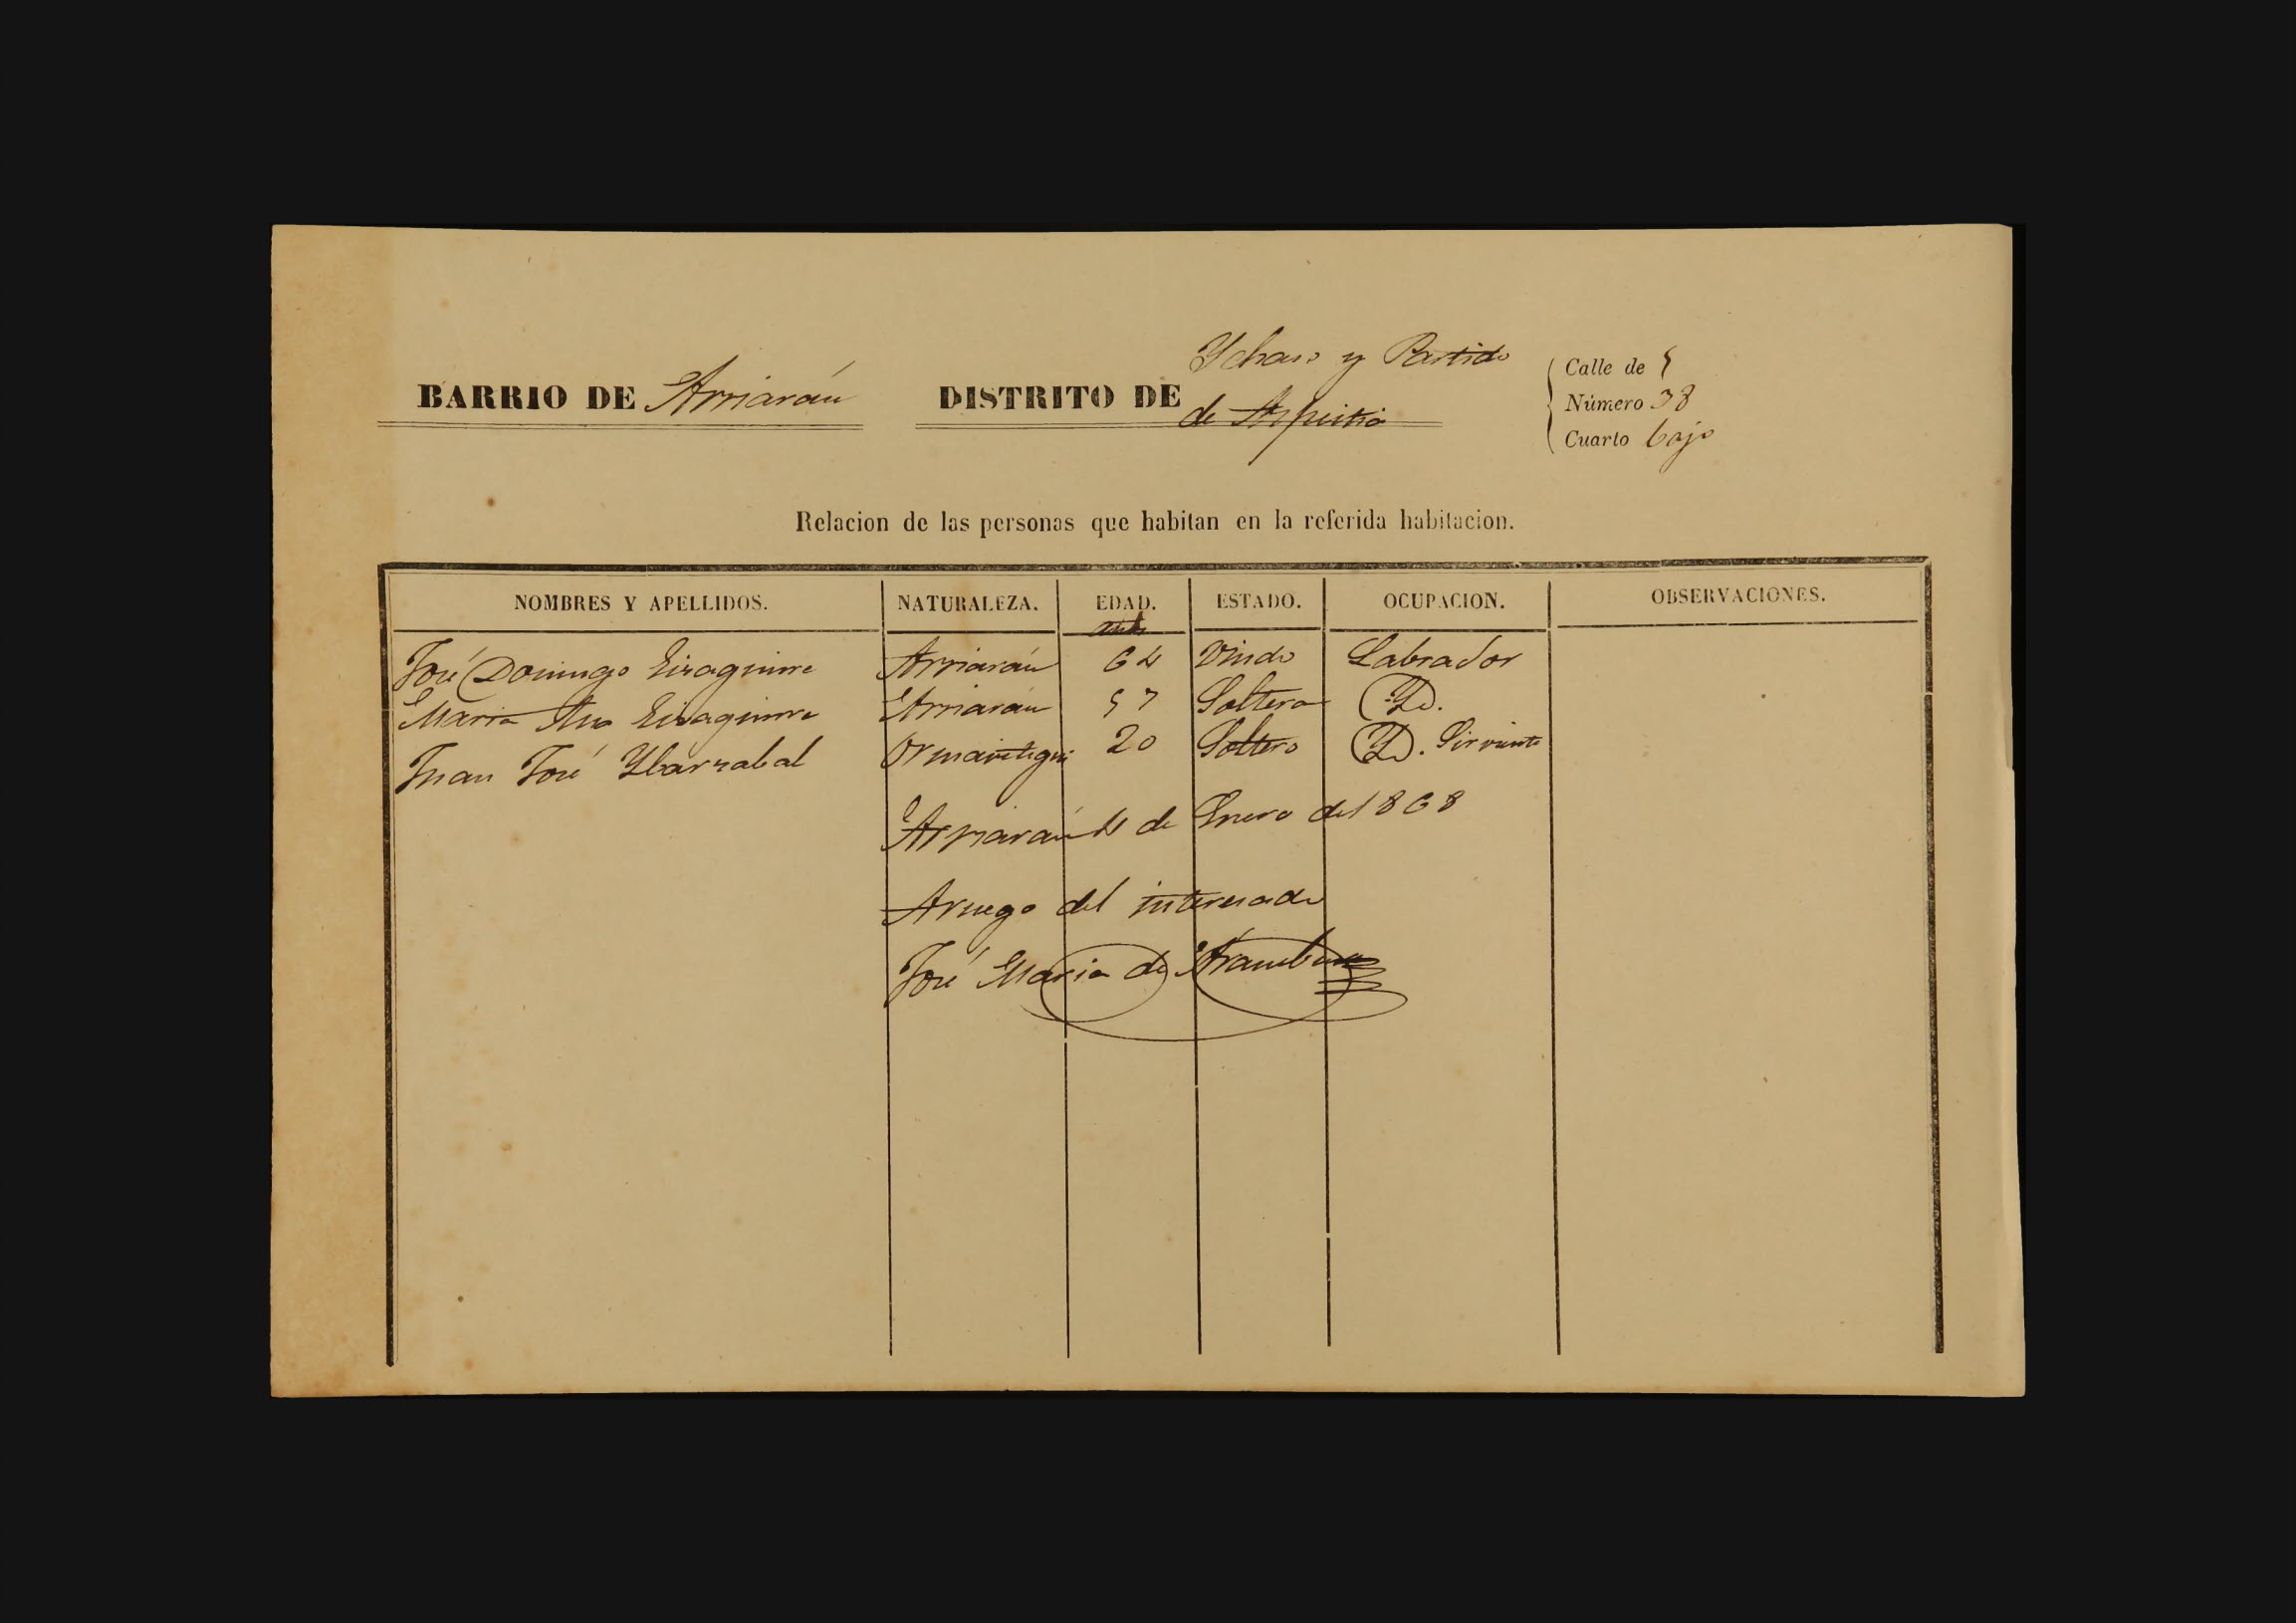 Ychaso y Partido
BARRIO DE Arriarán DISTRITO DE de Aspeitia
Calle de 5
Número 38
Cuarto bajo
Relacion de las personas que habitan en la referida habitacion.
NOMBRES Y APELLIDOS. NATURALEZA. EDAD. ESTADO. OCUPACION. OBSERVACIONES.
José Domingo Eizaguirre Arriarán 64 Viudo Labrador
Maria Ana Eizaguirre Arriarán 57 Soltera YD.
Juan José Ybarzabal Ormaiztegui 20 Soltero YD. Sirviente
Arriarán 4 de Enero del 868
Aruego del interesado
José Maria de Aramburu